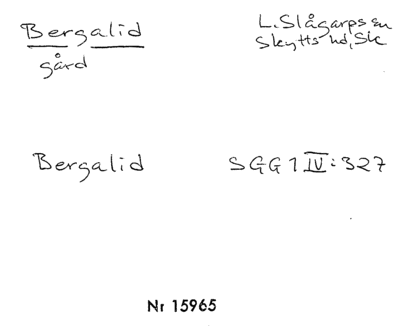 Bergalid
L. Slågarps sn
gård
Skytts hd, Sk
Bergalid
SGG 1 IV: 327
Nr 15965